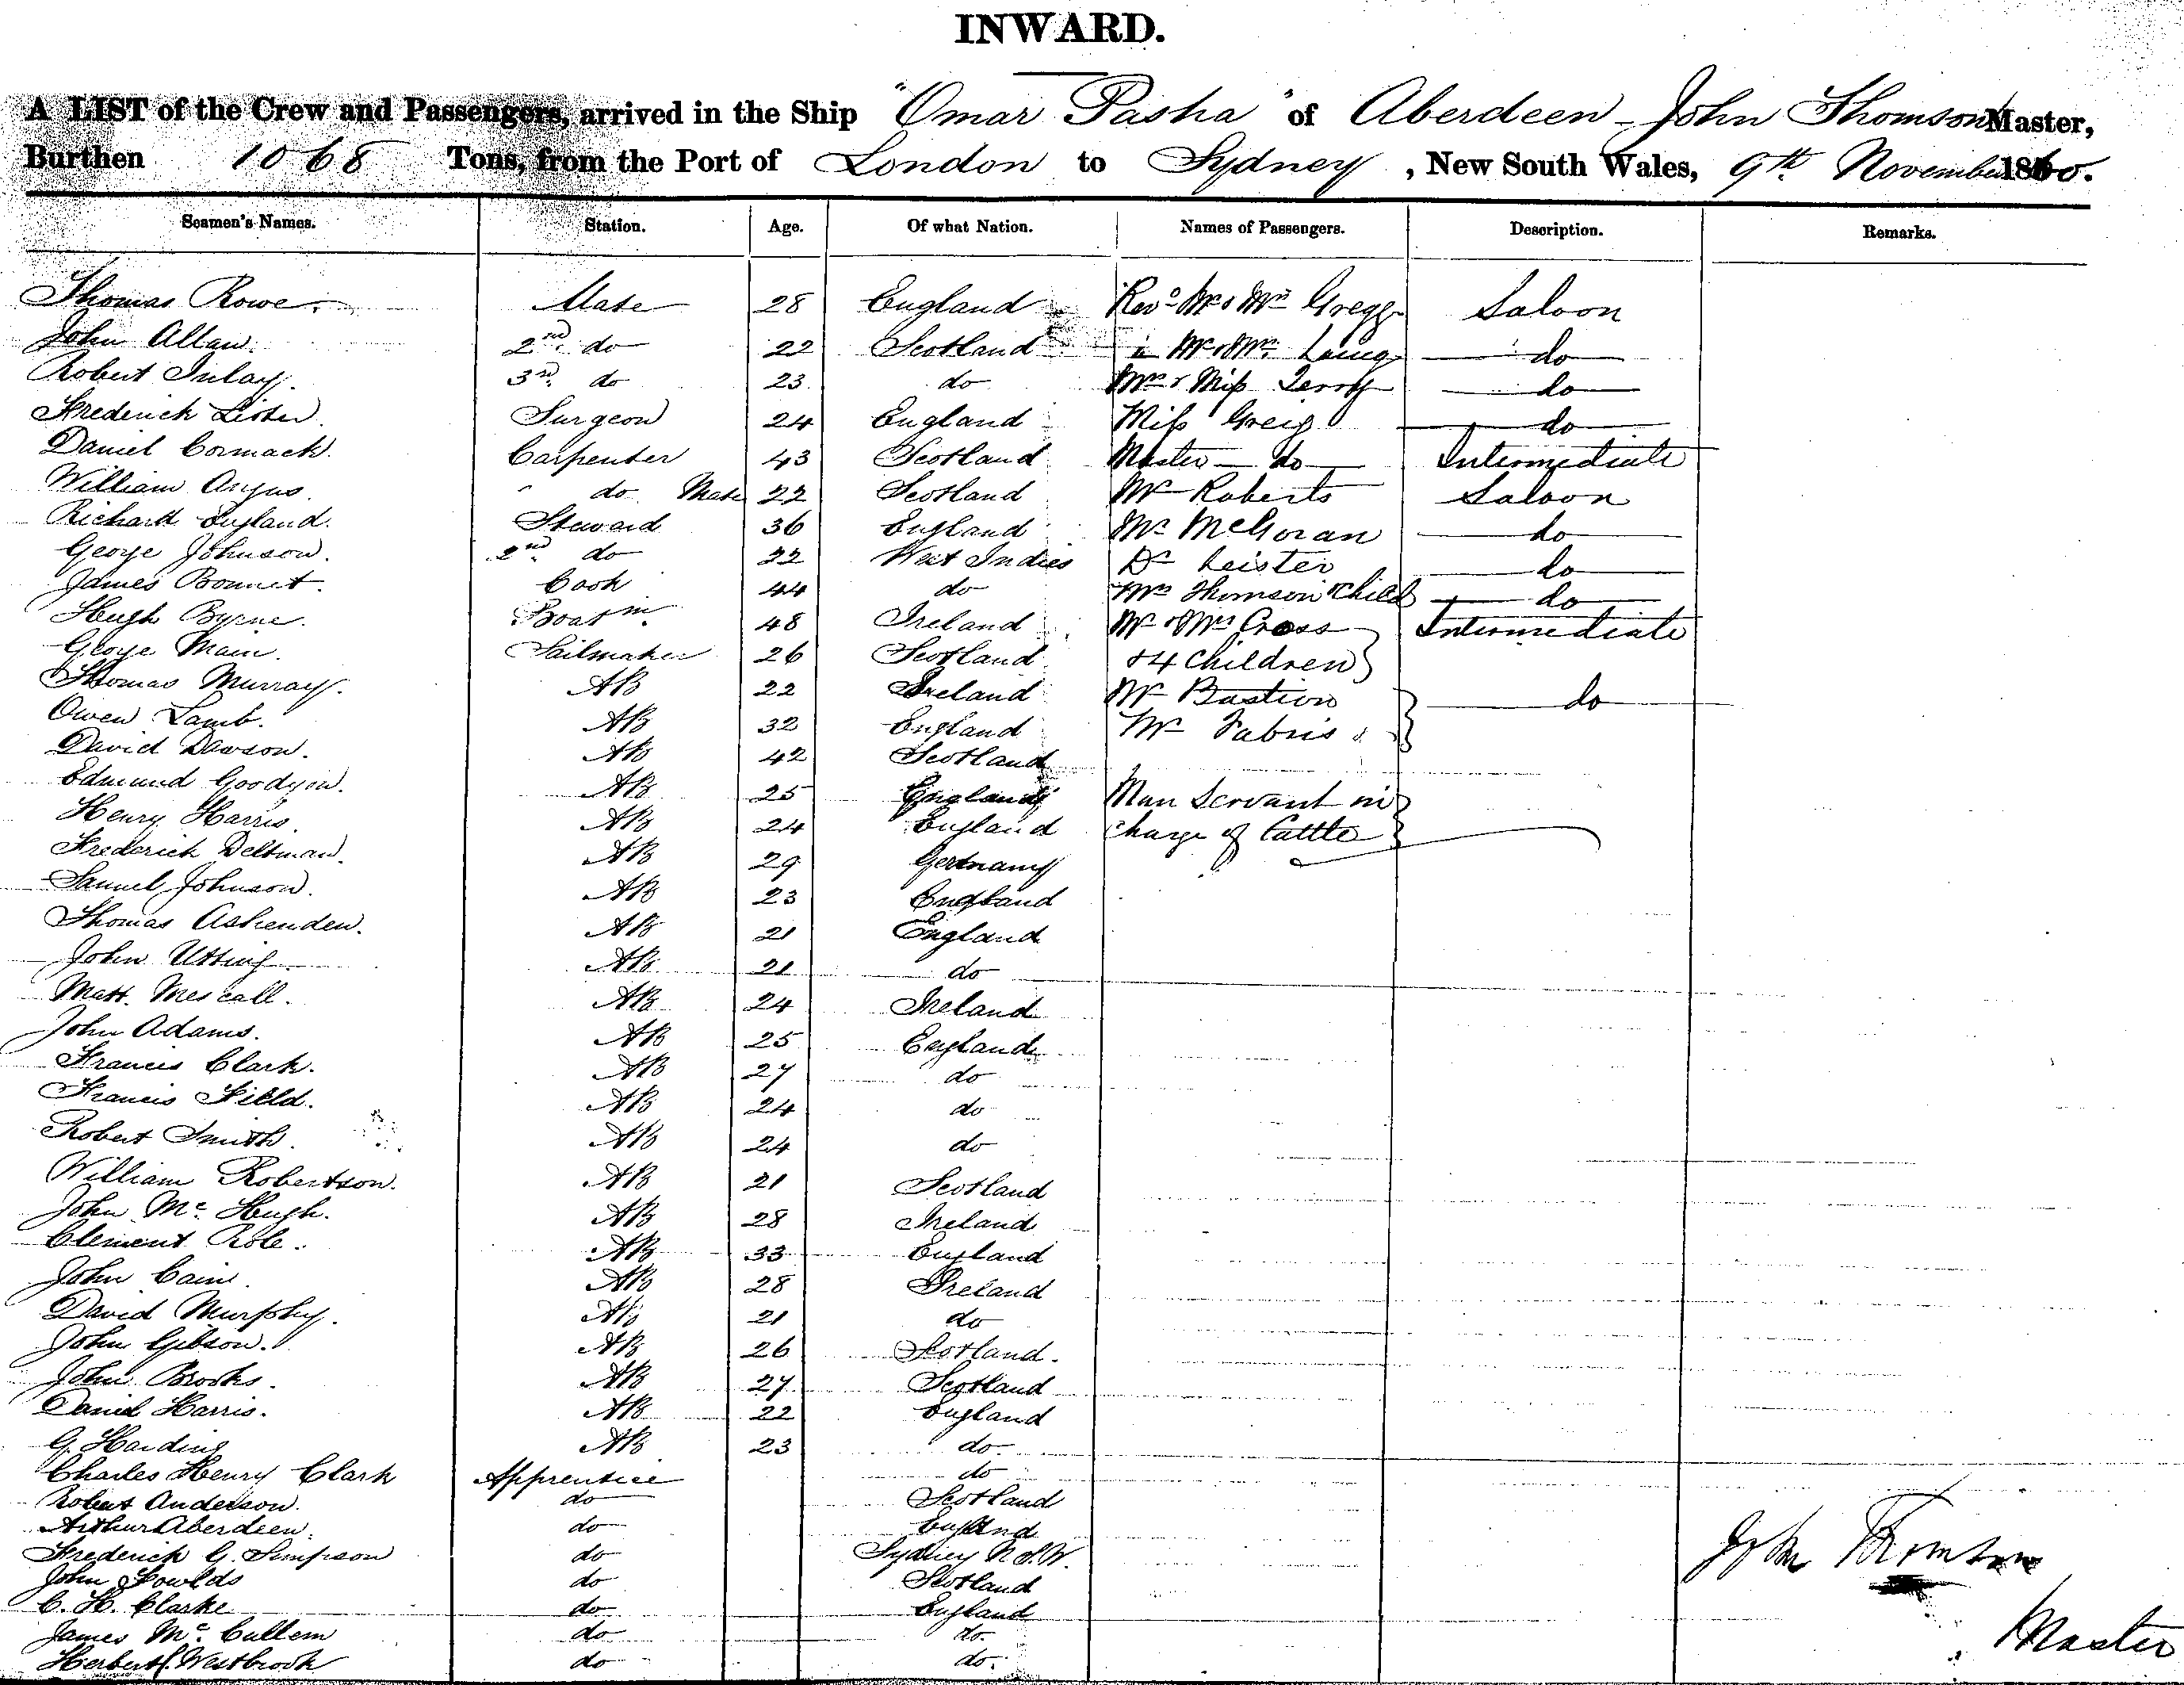 INWARD.
A LIST of the Crew and Passengers, arrived in the Ship "Omar Pasha" of Aberdeen - John Thomson Master,
Burthen 1068 Tons, from the Port of London to Sydney, New South Wales, 9th November 1860.
Seamen's Names. Station. Age. Of what Nation. Names of Passengers. Description. Remarks.
Thomas Rowe. Mate 28 England Revd Mr & Mrs Gregg Saloon
John Allan. 2nd do 22 Scotland " Mr & Mrs Laing do
Robert Inlay. 3rd do 23 do Mrs & Miss Terry do
Frederick Lister. Surgeon 24 England Miss Greig do
Daniel Cormack. Carpenter 43 Scotland Master do Intermediate
William Angus. " do Mate 22 Scotland Mr Roberts Saloon
Richard England. Steward 36 England Mr McGoran do
George Johnson. 2nd do 22 West Indies Dr Leister do
James Bonnet. Cook 44 do Mrs Thomson & Child do
Hugh Byrne. Boatsn. 48 Ireland Mr & Mrs Cross Intermediate
George Main. Sailmaker 26 Scotland & 4 Children
Thomas Murray. AB 22 Ireland Mr Bastion do
Owen Lamb. AB 32 England Mr Fabris
David Dawson. AB 42 Scotland
Edmund Goodyon. AB 25 England Man Servant in
Henry Harris. AB 24 England Charge of Cattle
Frederick Deltman. AB 29 Germany
Samuel Johnson. AB 23 England
Thomas Ashenden. AB 21 England
John Utting AB 21 do
Matt. Mescall. AB 24 Ireland
John Adams. AB 25 England
Francis Clark. AB 27 do
Francis Field. AB 24 do
Robert Smith. AB 24 do
William Robertson. AB 21 Scotland
John Mc Hugh. AB 28 Ireland
Clement Role. AB 33 England
John Cain. AB 28 Ireland
David Murphy. AB 21 do
John Gibson. AB 26 Scotland.
John Brooks. AB 27 Scotland
Daniel Harris. AB 22 England
G. Harding AB 23 do
Charles Henry Clark Apprentice do
Robert Anderson. do Scotland
Arthur Aberdeen. do England
Frederick G. Simpson do Sydney N.S.W.
John Fowlds do Scotland
C. H. Clarke do England
James Mc Cullem do do.
Herbert Westbrook do do.
John Thomson
Master